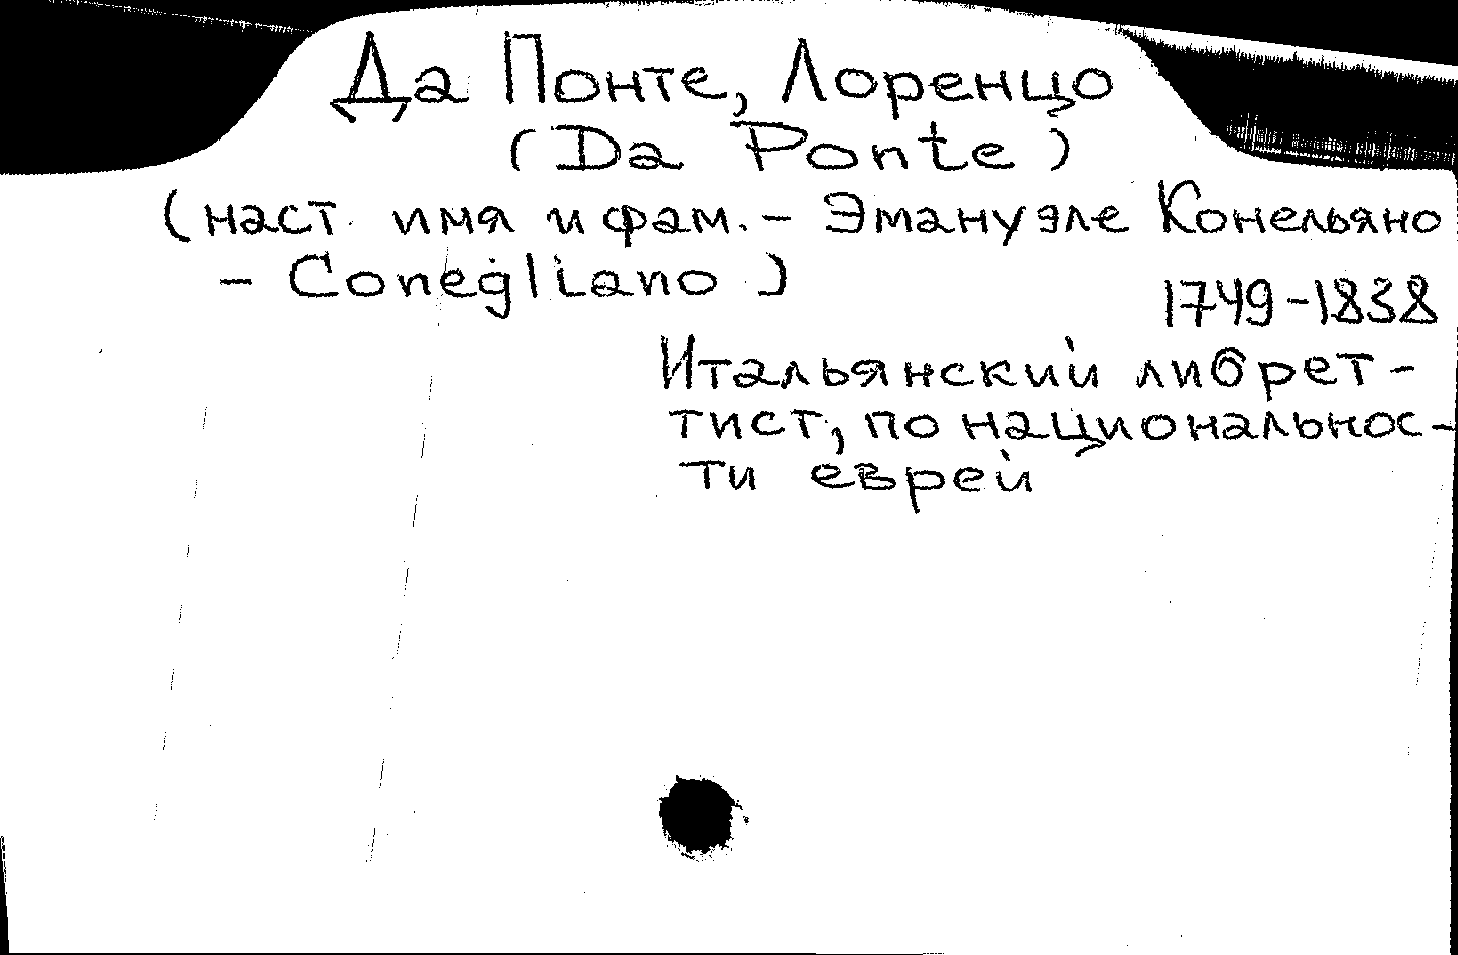 Да Понте, Лоренцо
(Da Ponte)
(наст. имя и фам. - Эмануэле Конельяно
- Conegliano)
1749-1838
Итальянский либрет-
тист, по национальнос-
ти еврей